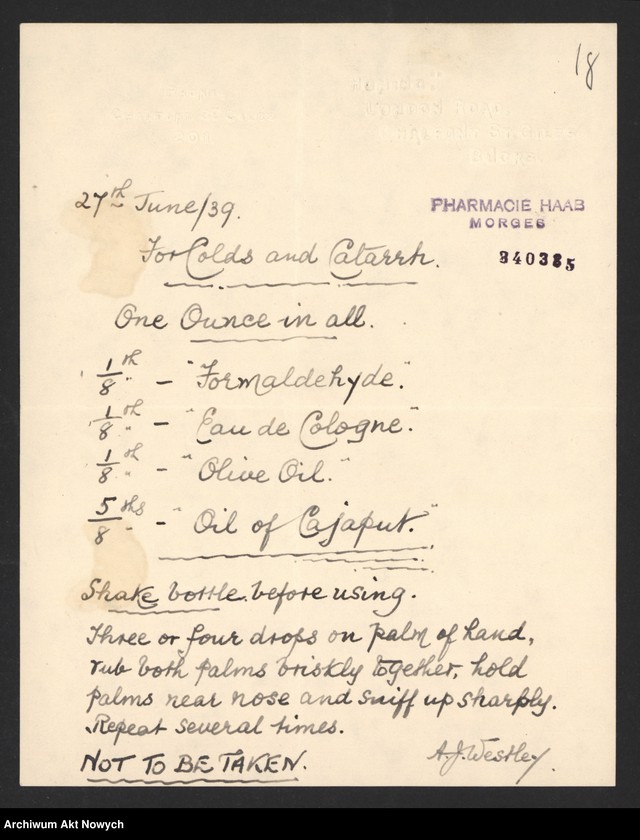 18
27th June/39.
PHARMACIE HAAB
MORGES
340385
For Colds and Catarrh.
One Ounce in all.
1/8th — "Formaldehyde."
1/8th — "Eau de Cologne."
1/8th — "Olive Oil."
5/8ths — "Oil of Cajaput."
Shake bottle before using.
Three or four drops on palm of hand,
rub both palms briskly together, hold
palms near nose and sniff up sharply.
Repeat several times.
NOT TO BE TAKEN.
A.J. Westley.
Archiwum Akt Nowych